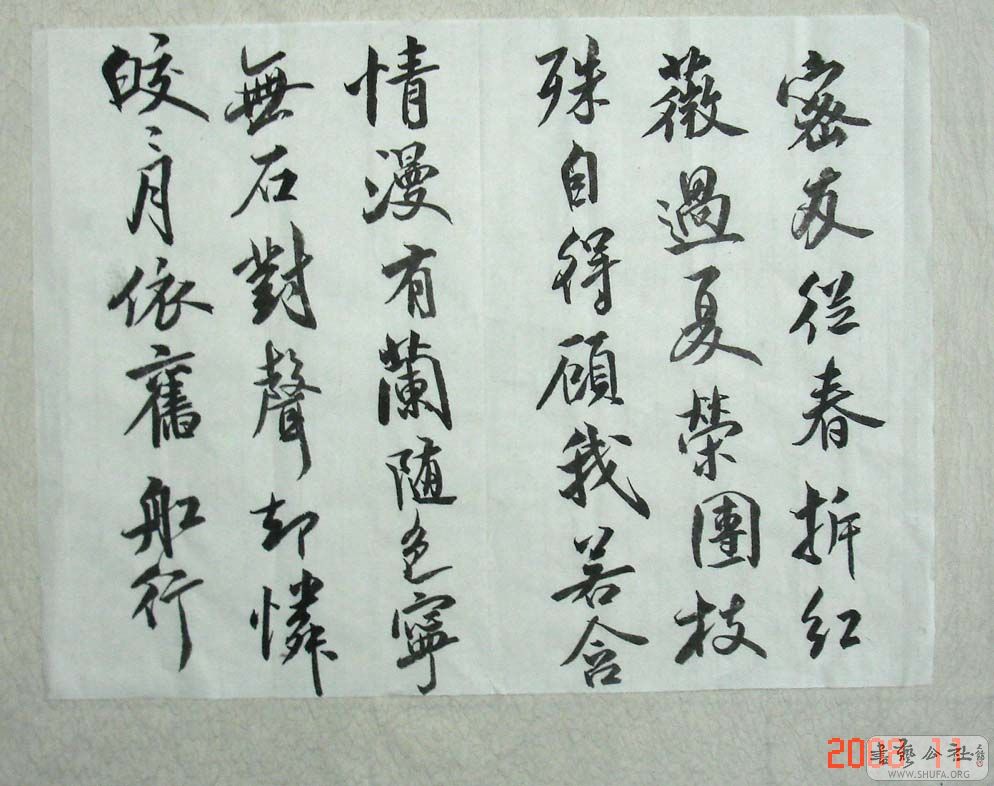 密友從春拆紅
薇過夏榮團枝
殊自得顧我若含
情漫有蘭隨色寧
無石對聲却憐
皎々月依舊舡行
2008 11
書藝公社
WWW.SHUFA.ORG